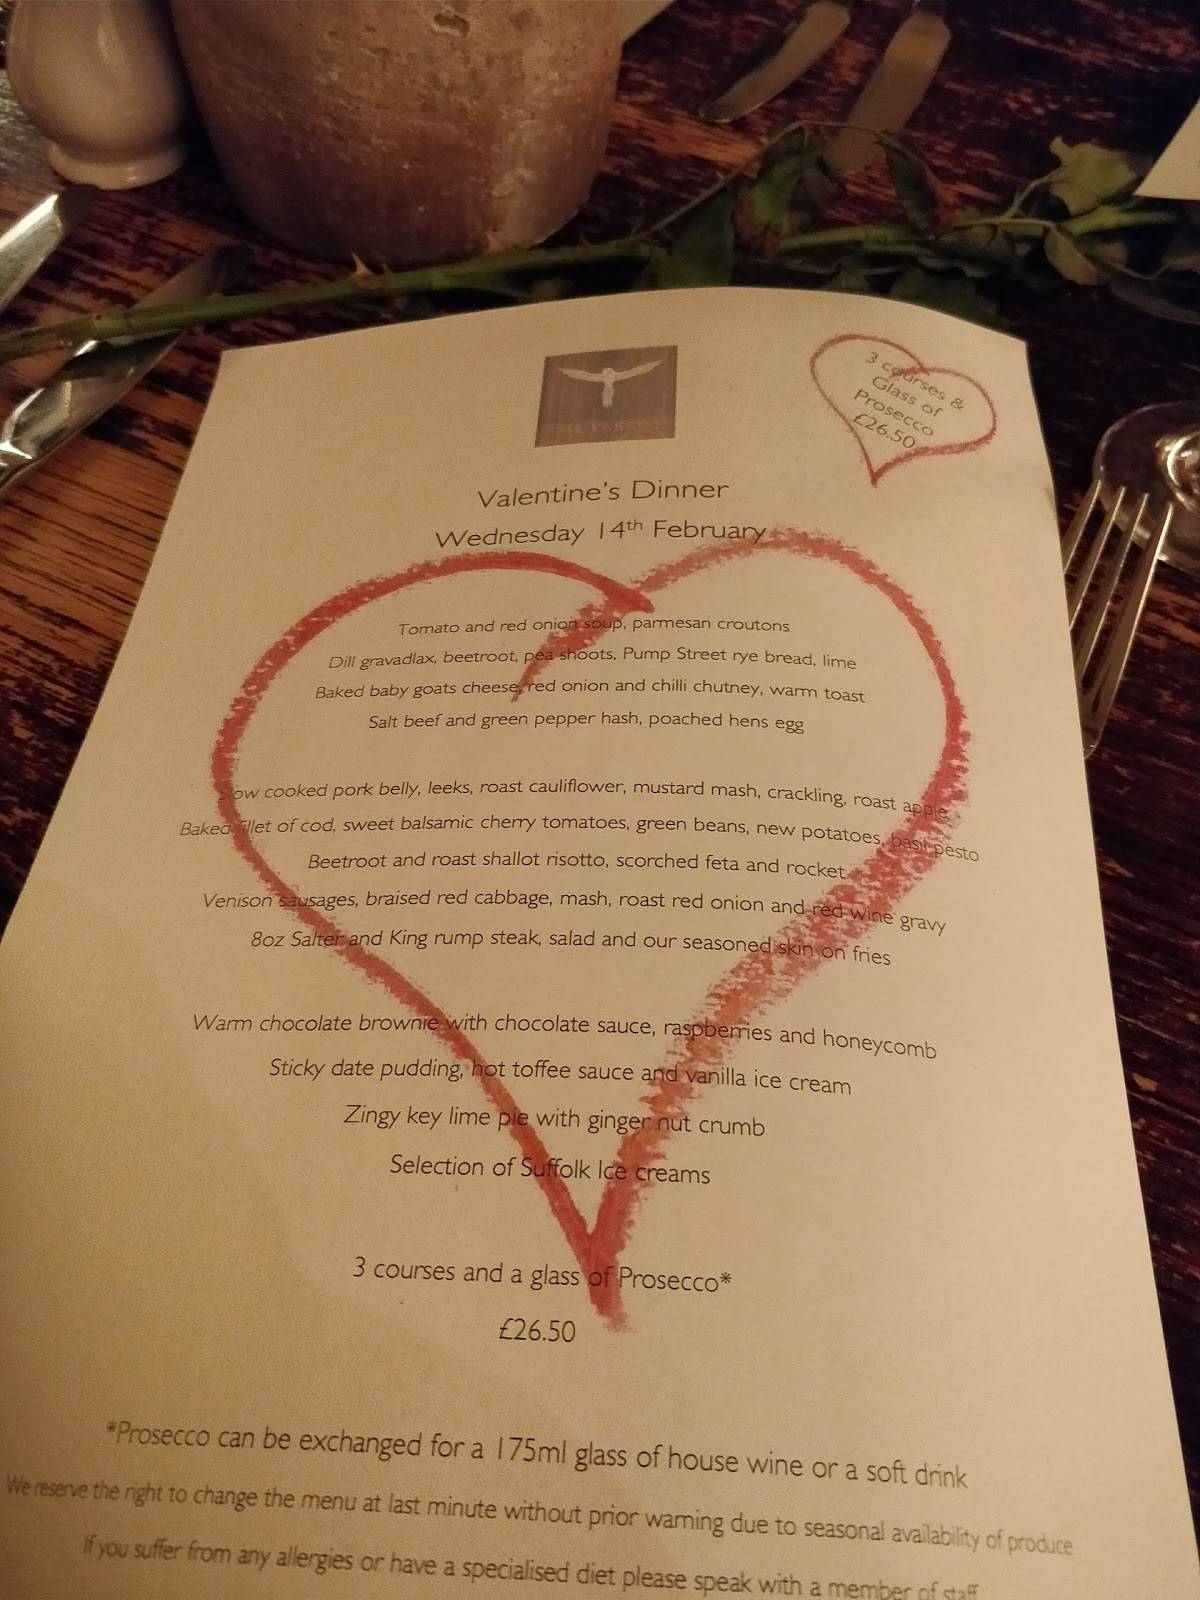 THE PARROT
3 courses &
Glass of
Prosecco
£26.50
Valentine's Dinner
Wednesday 14th February
Tomato and red onion soup, parmesan croutons
Dill gravadlax, beetroot, pea shoots, Pump Street rye bread, lime
Baked baby goats cheese, red onion and chilli chutney, warm toast
Salt beef and green pepper hash, poached hens egg
Slow cooked pork belly, leeks, roast cauliflower, mustard mash, crackling, roast apple
Baked fillet of cod, sweet balsamic cherry tomatoes, green beans, new potatoes, basil pesto
Beetroot and roast shallot risotto, scorched feta and rocket
Venison sausages, braised red cabbage, mash, roast red onion and red wine gravy
8oz Salter and King rump steak, salad and our seasoned skin on fries
Warm chocolate brownie with chocolate sauce, raspberries and honeycomb
Sticky date pudding, hot toffee sauce and vanilla ice cream
Zingy key lime pie with ginger nut crumb
Selection of Suffolk Ice creams
3 courses and a glass of Prosecco*
£26.50
*Prosecco can be exchanged for a 175ml glass of house wine or a soft drink
We reserve the right to change the menu at last minute without prior warning due to seasonal availability of produce
If you suffer from any allergies or have a specialised diet please speak with a member of staff